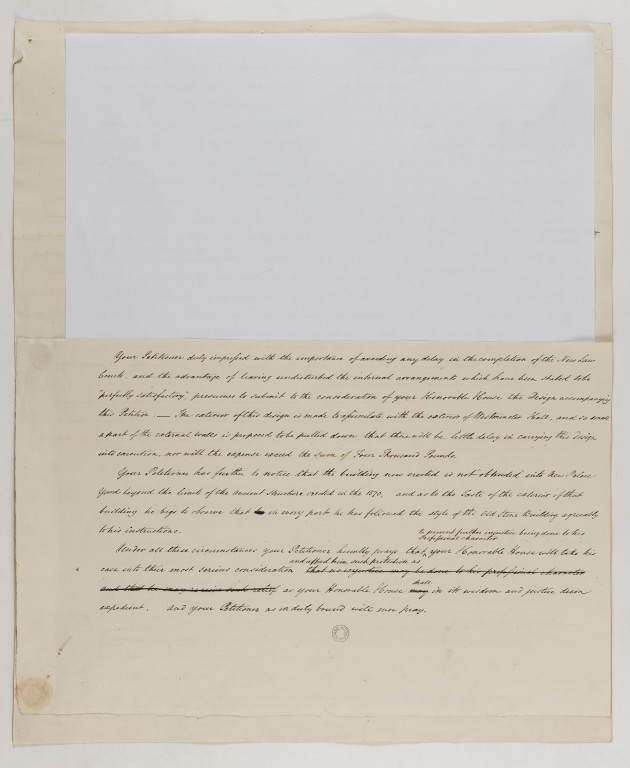 Your Petitioner duly impressed with the importance of avoiding any delay in the completion of the New Law
Courts, and the advantage of leaving undisturbed the internal arrangements which have been stated to be
"perfectly satisfactory," presumes to submit to the consideration of your Honorable House the Design accompanying
this Petition — The exterior of this design is made to assimilate with the exterior of Westminster Hall, and so small
a part of the external walls is proposed to be pulled down that there will be little delay in carrying this Design
into execution, nor will the expense exceed the Sum of Four Thousand Pounds.
Your Petitioner has further to notice that the building now erected is not obtruded into New Palace
Yard beyond the limit of the ancient structure erected in the 1570, and as to the Taste of the exterior of that
building he begs to observe that in every part he has followed the style of the Old Stone Building agreeably
to his instructions.
to prevent further injustice being done to his
Professional character
Under all these circumstances your Petitioner humbly prays that, your Honorable House will take his
and afford him such protection as
case into their most serious consideration that no injustice may be done to his professional character
shall
and that he may receive such relief as your Honorable House may in its wisdom and justice deem
expedient. and your Petitioner as in duty bound will ever pray.